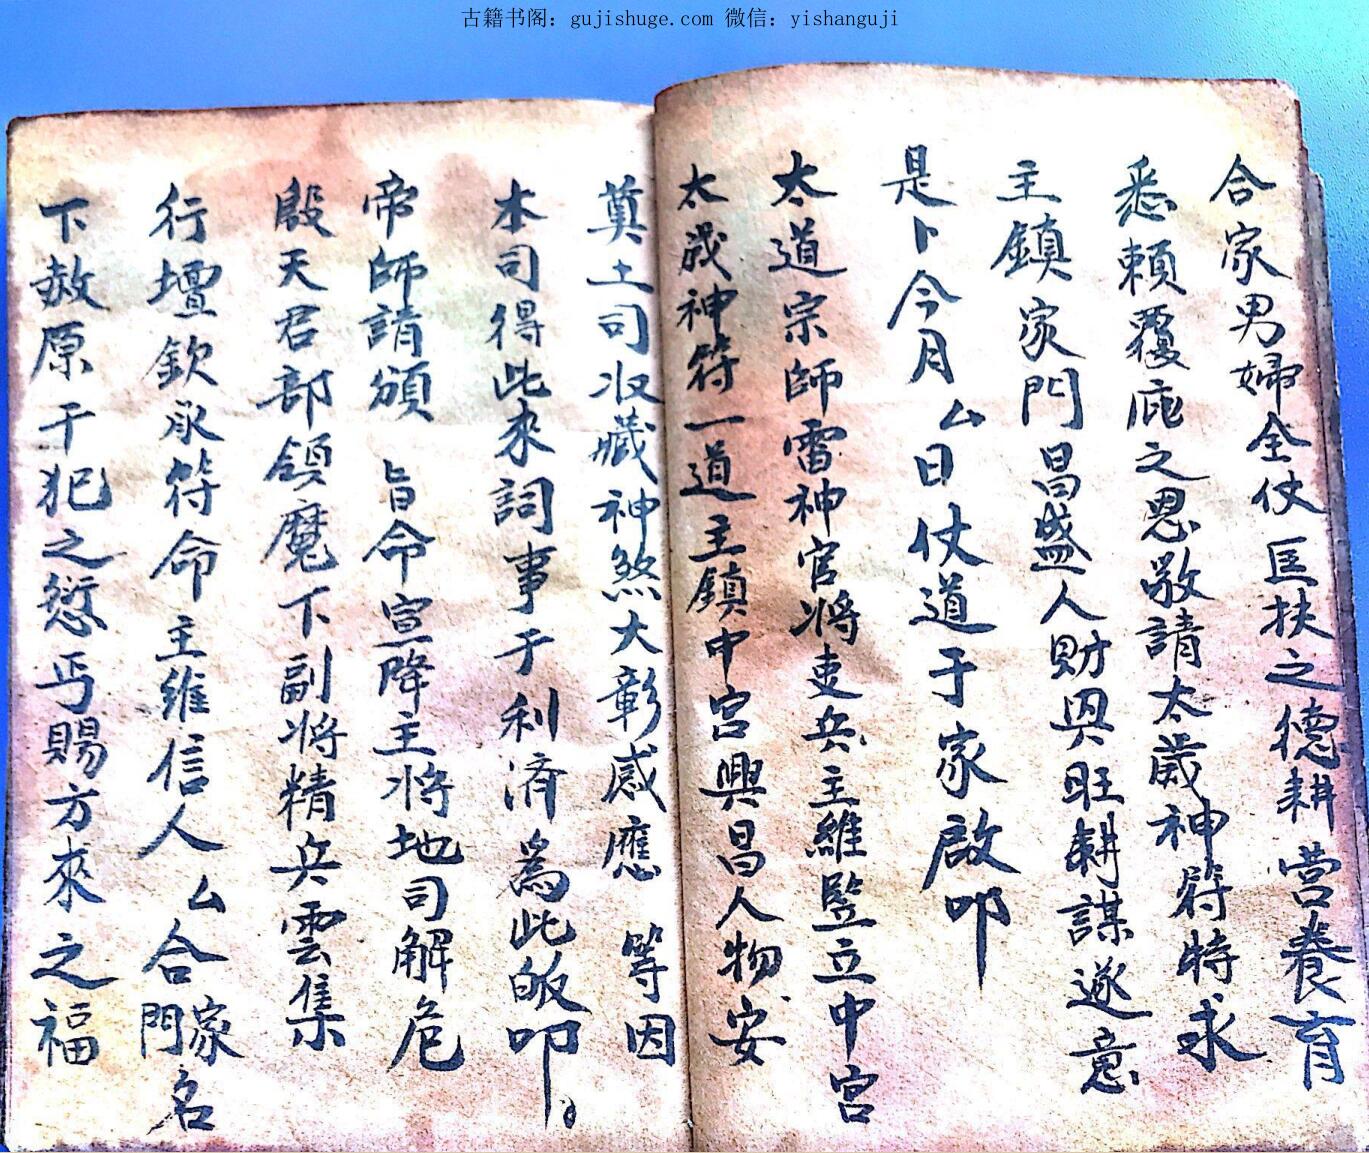 古籍书阁：gujishuge.com 微信：yishanguji
合家男婦全仗匡扶之德耕营養育
悉賴覆庇之恩敬請太歲神符特求
主鎮家門昌盛人財興旺耕謀遂意
是卜今月厶日仗道于家啟叩
太道宗師雷神官将吏兵主維監立中宫
太歲神符一道主鎮中宫興昌人物安
奠土司收藏神煞大彰感應 等因
本司得此來詞事于利济為此皈叩
帝師請頒 旨命宣降主将地司解危
殷天君部領魔下副将精兵雲集
行壇欽承符命主維信人厶合門家名
下赦原干犯之愆丐賜方來之福